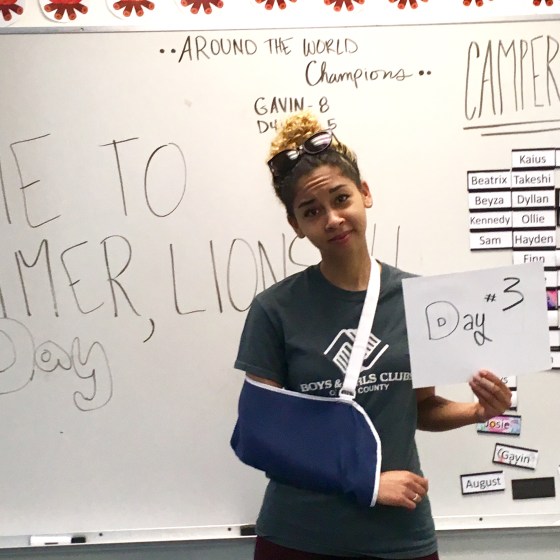 ••AROUND THE WORLD
Champions••
GAVIN - 8
5
CAMPER
TO
MER, LIONS
Day
Kaius
Beatrix Takeshi
Beyza Dyllan
Kennedy Ollie
Sam Hayden
Finn
Day #3
BOYS & GIRLS CLUBS
COUNTY
Josie
Gavin
August